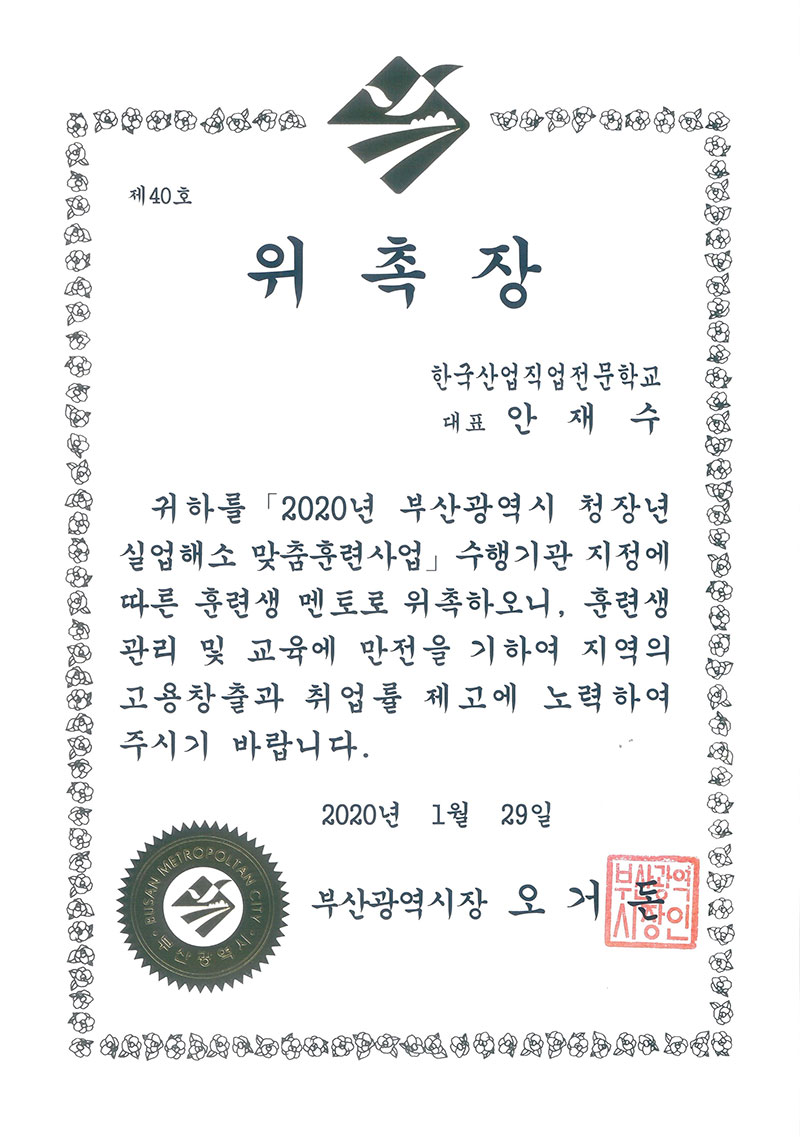 제40호
위촉장
한국산업직업전문학교
대표 안재수
귀하를 「2020년 부산광역시 청장년
실업해소 맞춤훈련사업」 수행기관 지정에
따른 훈련생 멘토로 위촉하오니, 훈련생
관리 및 교육에 만전을 기하여 지역의
고용창출과 취업률 제고에 노력하여
주시기 바랍니다.
2020년 1월 29일
부산광역시장 오거돈
부산광역
시장인
BUSAN METROPOLTAM CITY
부산광역시